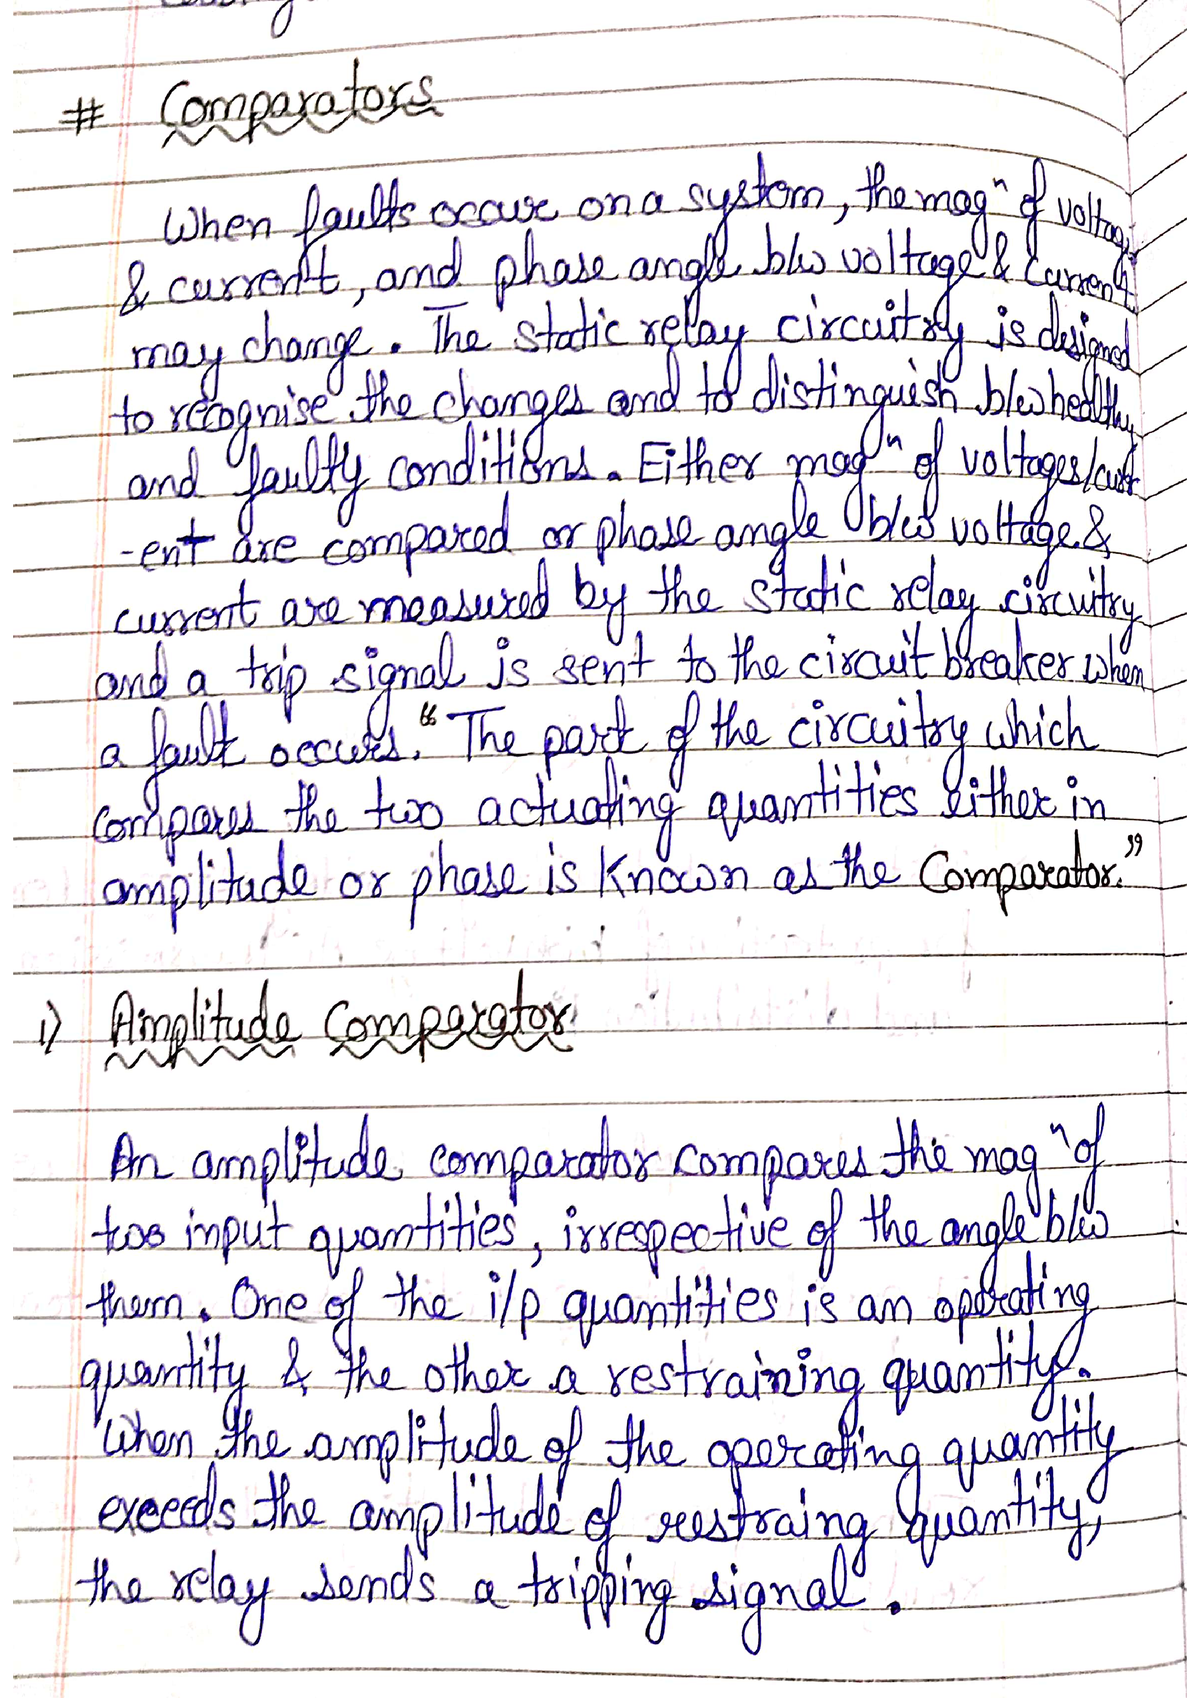 # Comparators
When faults occur on a system, the magⁿ of voltage
& current, and phase angle b/w voltage & current
may change. The static relay circuitry is designed
to recognise the changes and to distinguish b/w healthy
and faulty conditions. Either magⁿ of voltages/curr
-ent are compared or phase angle b/w voltage &
current are measured by the static relay circuitry
and a trip signal is sent to the circuit breaker when
a fault occurs. "The part of the circuitry which
compares the two actuating quantities either in
amplitude or phase is known as the Comparator."
1) Amplitude Comparator
An amplitude comparator compares the magⁿ of
two input quantities, irrespective of the angle b/w
them. One of the i/p quantities is an operating
quantity & the other a restraining quantity.
When the amplitude of the operating quantity
exceeds the amplitude of restraing quantity,
the relay sends a tripping signal.